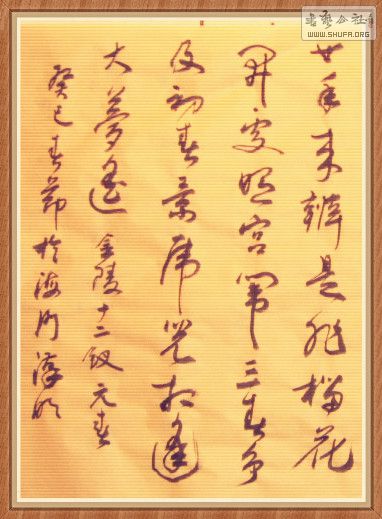 書藝公社
WWW.SHUFA.ORG
廿年来辨是非榴花
开处照宫闱三春争
及初春景虎兕相逢
大夢归 金陵十二钗元春
癸巳春节於海门